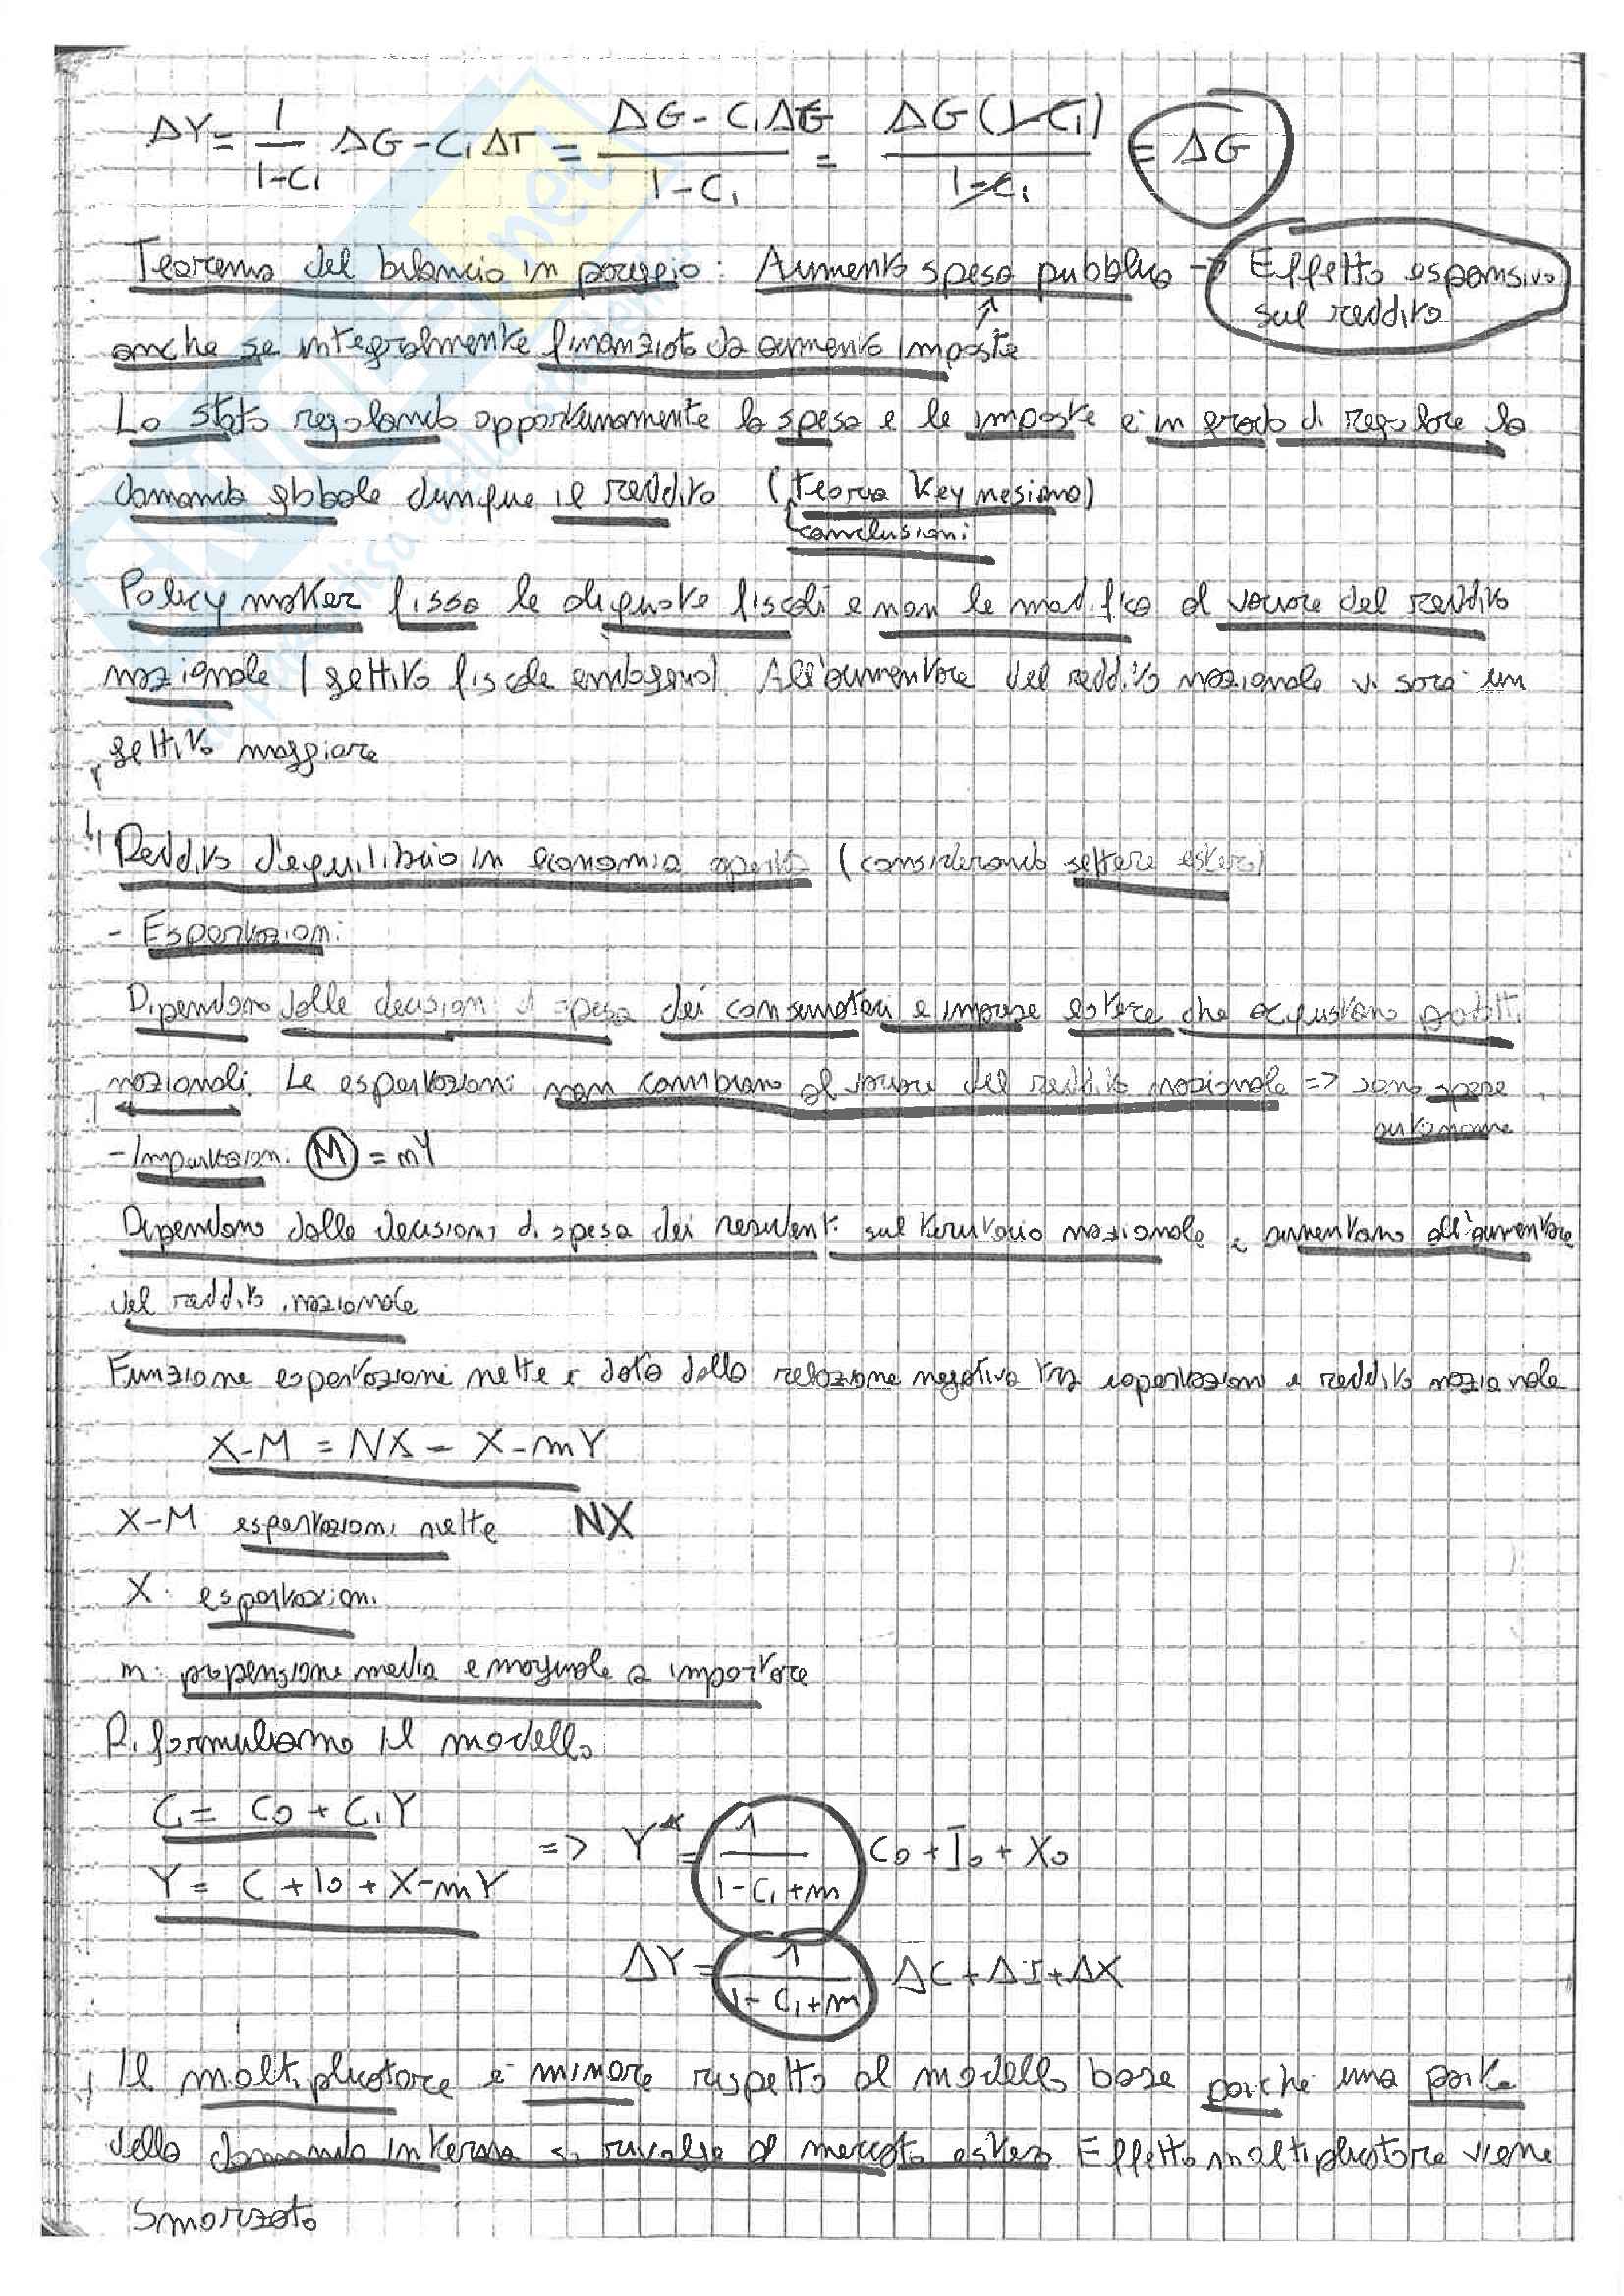 ΔY = 1/(1-C₁) ΔG - C₁ΔT = (ΔG - C₁ΔG)/(1-C₁) = ΔG(1-C₁)/(1-C₁) = ΔG
Teorema del bilancio in pareggio: Aumento spesa pubblica → Effetto espansivo sul reddito
anche se integralmente finanziato da aumento imposte
Lo Stato regolando opportunamente la spesa e le imposte è in grado di regolare la
domanda globale dunque il reddito (teoria Keynesiana)
conclusioni
Policy maker fissa le aliquote fiscali e non le modifica al variare del reddito
nazionale (gettito fiscale endogeno). All'aumentare del reddito nazionale vi sarà un
gettito maggiore
Reddito d'equilibrio in economia aperta (considerando settore estero)
- Esportazioni:
Dipendono dalle decisioni di spesa dei consumatori e imprese estere che acquistano prodotti
nazionali. Le esportazioni non cambiano al variare del reddito nazionale => sono spese
autonome
- Importazioni: M = mY
Dipendono dalle decisioni di spesa dei residenti sul territorio nazionale e aumentano all'aumentare
del reddito nazionale
Funzione esportazioni nette è data dalla relazione negativa tra esportazioni e reddito nazionale
X-M = NX = X-mY
X-M esportazioni nette NX
X: esportazioni
m: propensione media e marginale a importare
Riformuliamo il modello
C = C0 + C₁Y
Y = C + I0 + X-mY
=> Y* = 1/(1-C₁+m) C0 + I0 + X0
ΔY = 1/(1-C₁+m) ΔC + ΔI + ΔX
Il moltiplicatore è minore rispetto al modello base poiché una parte
della domanda interna si rivolge al mercato estero. Effetto moltiplicatore viene
smorzato